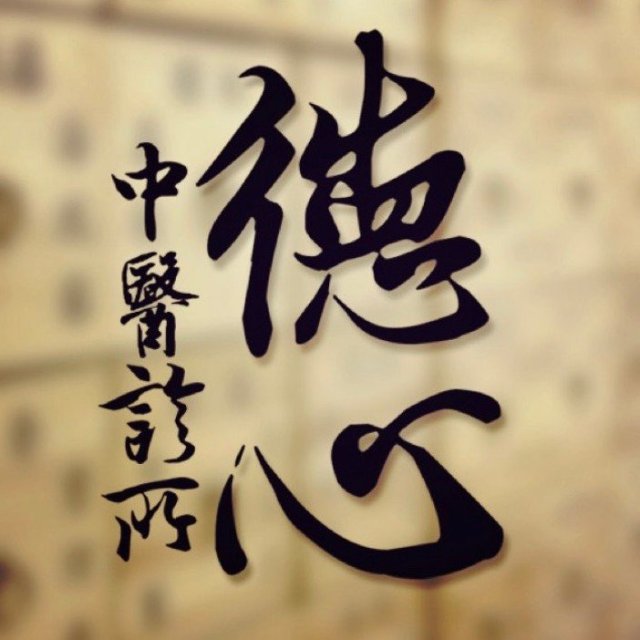 德心
中醫診所